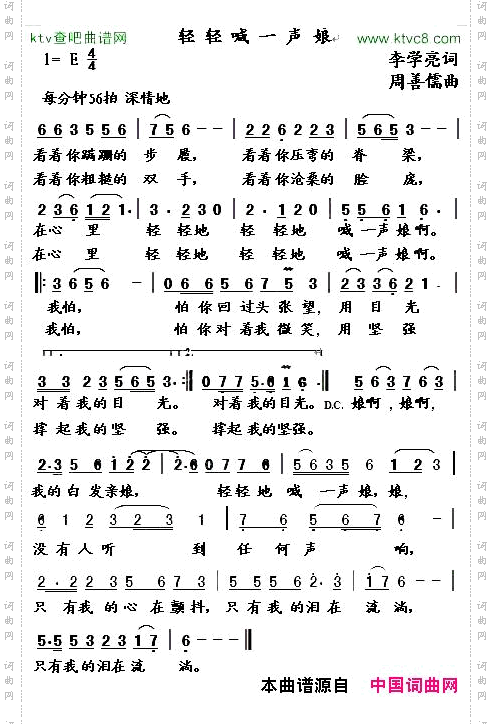 ktv查吧曲谱网 轻轻喊一声娘 www.ktvc8.com
1= E 4/4 李学亮词
周善儒曲
每分钟56拍 深情地
6 6 3 5 5 5 | 7 5 6 - - | 2 2 1 6 2 2 3 | 5 6 5 3 - - |
看着你蹒跚的 步 履, 看着你压弯的 脊 梁,
看着你粗糙的 双 手, 看着你沧桑的 脸 庞,
2 3 6 1 2 1 - | 3 · 2 3 0 | 2 · 1 2 0 | 5 5 6 1 6 · |
在心 里 轻 轻地 轻 轻地 喊 一声娘啊。
在心 里 轻 轻地 轻 轻地 喊 一声娘啊。
3 6 5 6 - | 0 6 6 5 6 7 5 | 2 3 3 6 2 1 · |
我怕, 怕 你回 过头 张 望, 用 目 光
我怕, 怕 你对 着我 微 笑, 用 坚 强
1. 2.
3 3 2 3 5 6 5 3 · :| 0 7 7 5 · 6 1 - :| 5 6 3 7 6 3 |
对 着 我的 目 光。 对着我的目光。D.C. 娘啊,娘啊,
撑 起 我的 坚 强。 撑起我的坚强。
2 · 3 5 6 1 2 2 | 2 · 6 0 7 7 6 | 5 6 3 5 5 6 1 2 3 |
我的 白 发亲娘, 轻轻 地 喊 一声娘,娘,
6 1 2 3 2 3 1 | 7 6 5 6 7 6 - |
没 有 人 听 到 任 何 声 响,
2 · 2 3 5 6 7 3 | 5 5 5 6 2 · 3 | 1 7 6 - - |
只 有 我 的 心 在 颤 抖, 只 有 我 的泪 在 流 淌,
5 · 5 5 3 2 3 1 7 | 6 - - - ‖
只有我的泪在 流 淌。
本曲谱源自 中国词曲网
词曲网